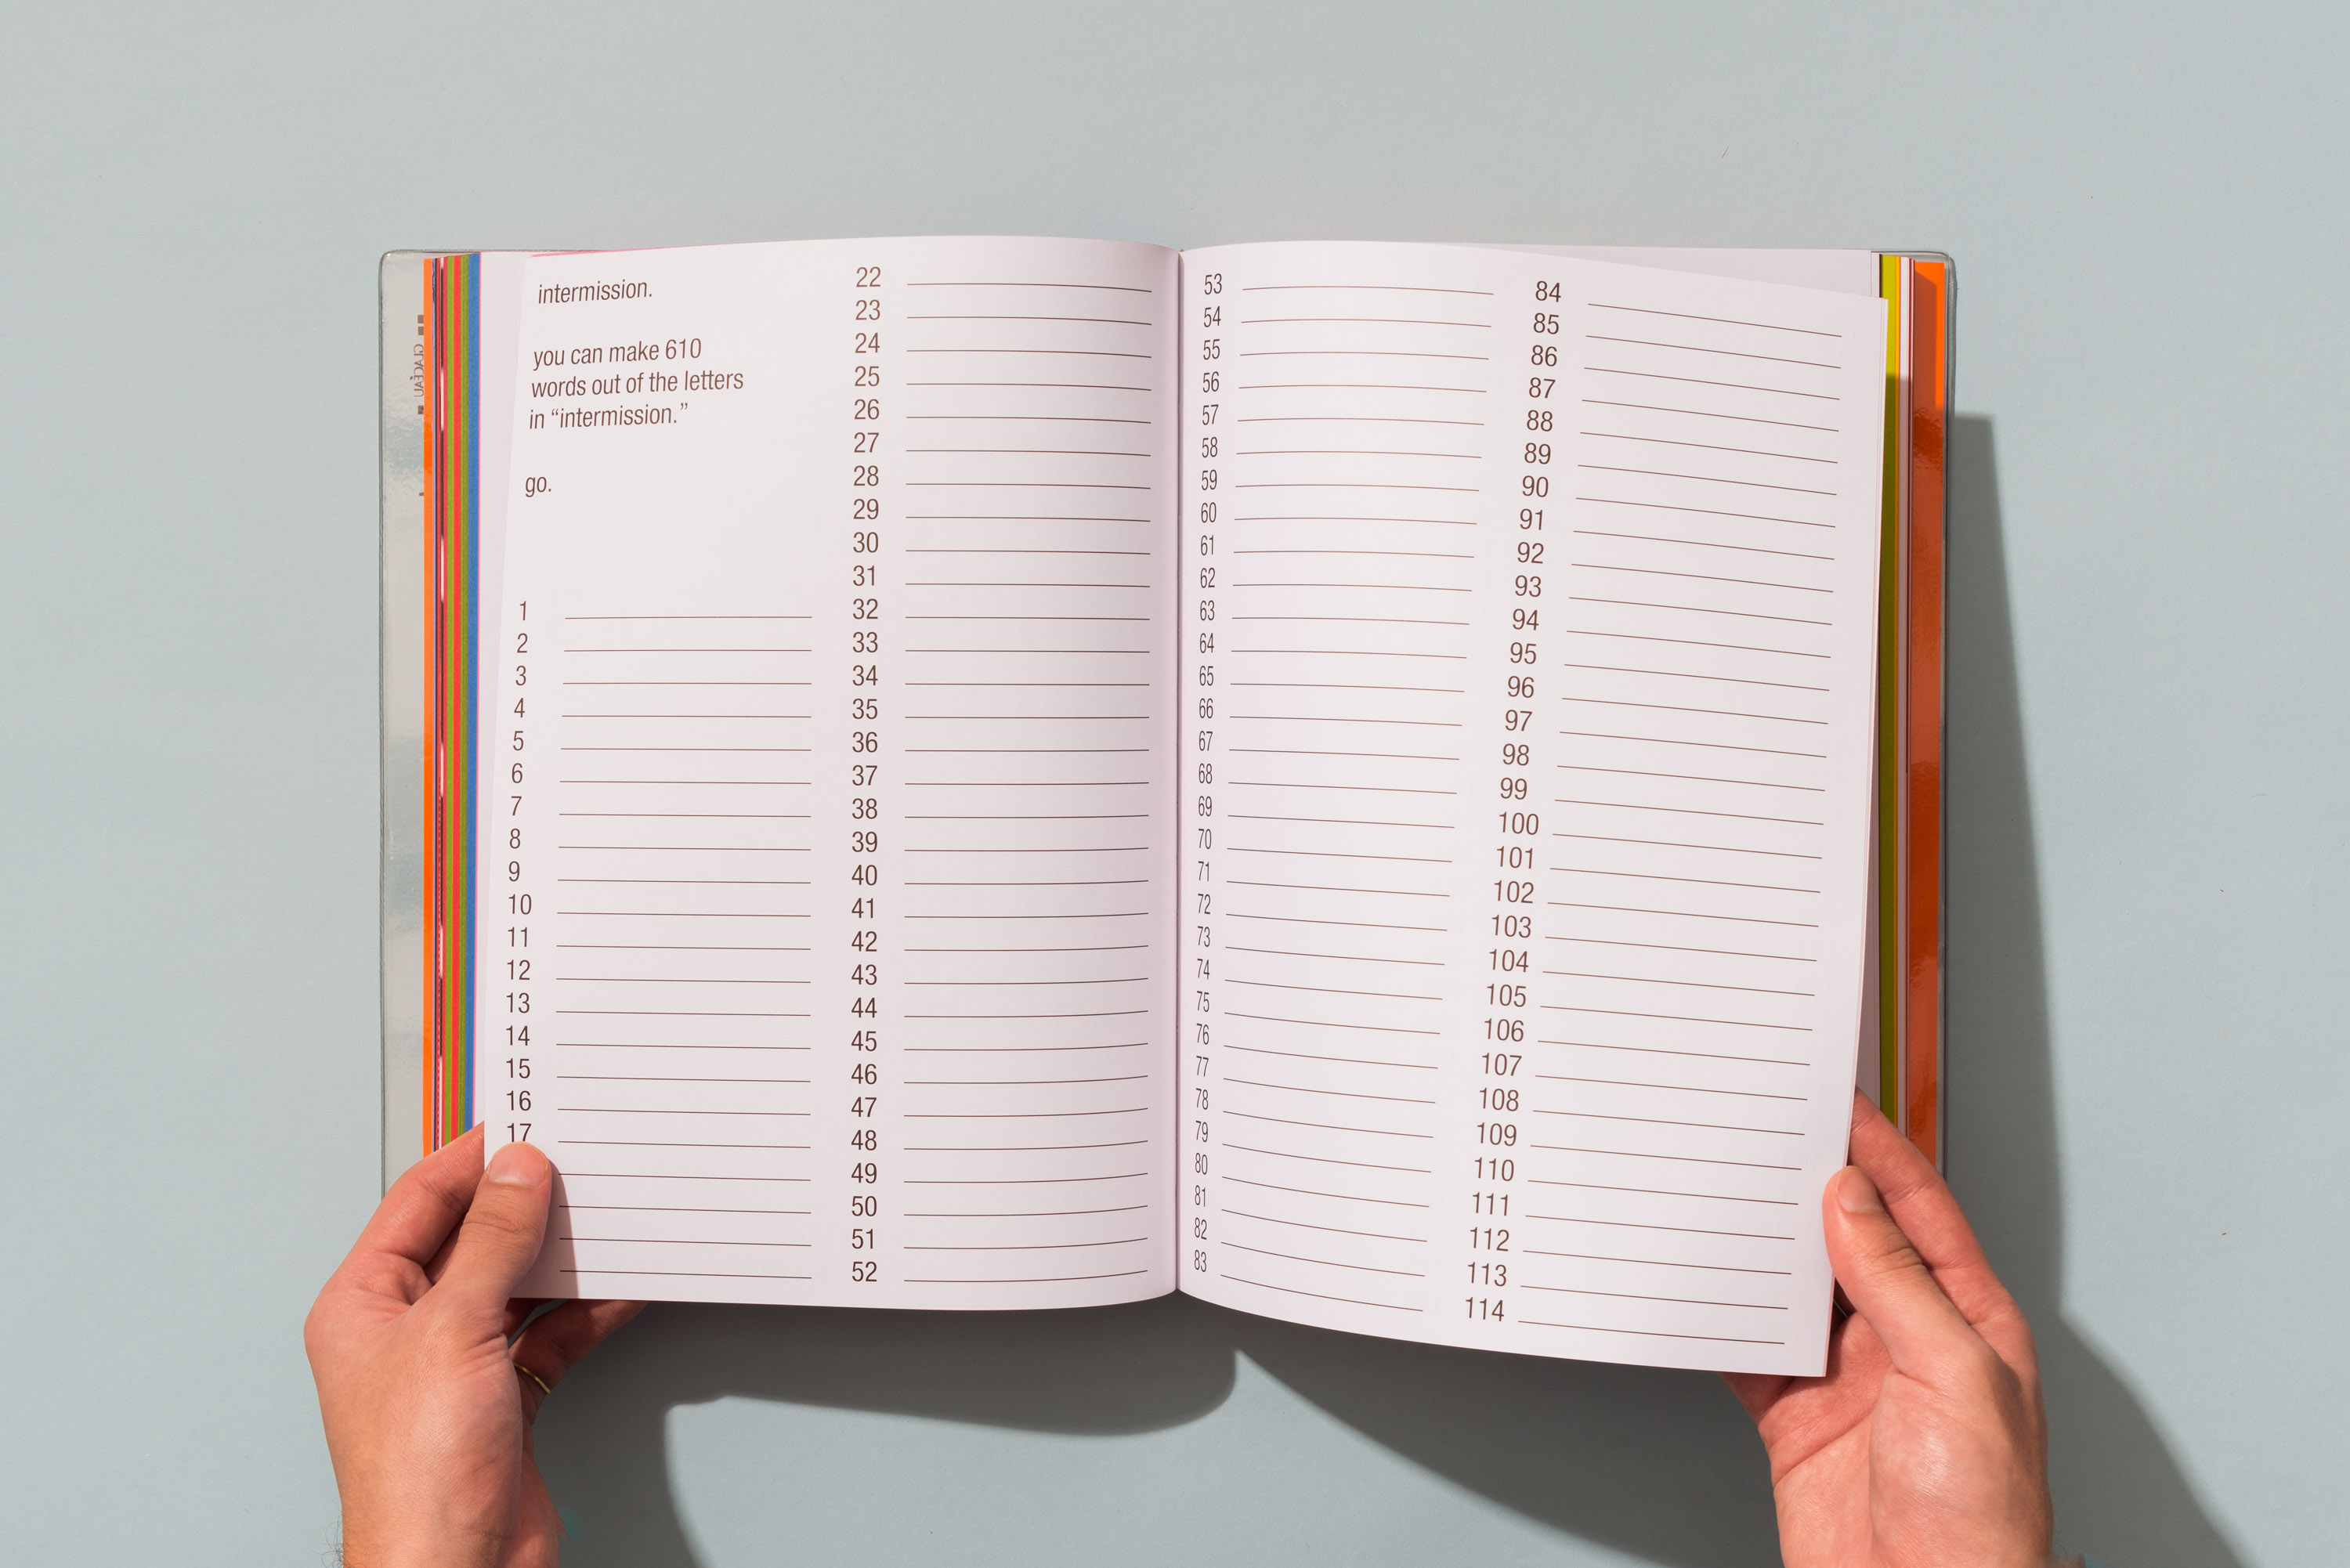 intermission.
you can make 610
words out of the letters
in “intermission.”
go.
1
2
3
4
5
6
7
8
9
10
11
12
13
14
15
16
17
22
23
24
25
26
27
28
29
30
31
32
33
34
35
36
37
38
39
40
41
42
43
44
45
46
47
48
49
50
51
52
53
54
55
56
57
58
59
60
61
62
63
64
65
66
67
68
69
70
71
72
73
74
75
76
77
78
79
80
81
82
83
84
85
86
87
88
89
90
91
92
93
94
95
96
97
98
99
100
101
102
103
104
105
106
107
108
109
110
111
112
113
114